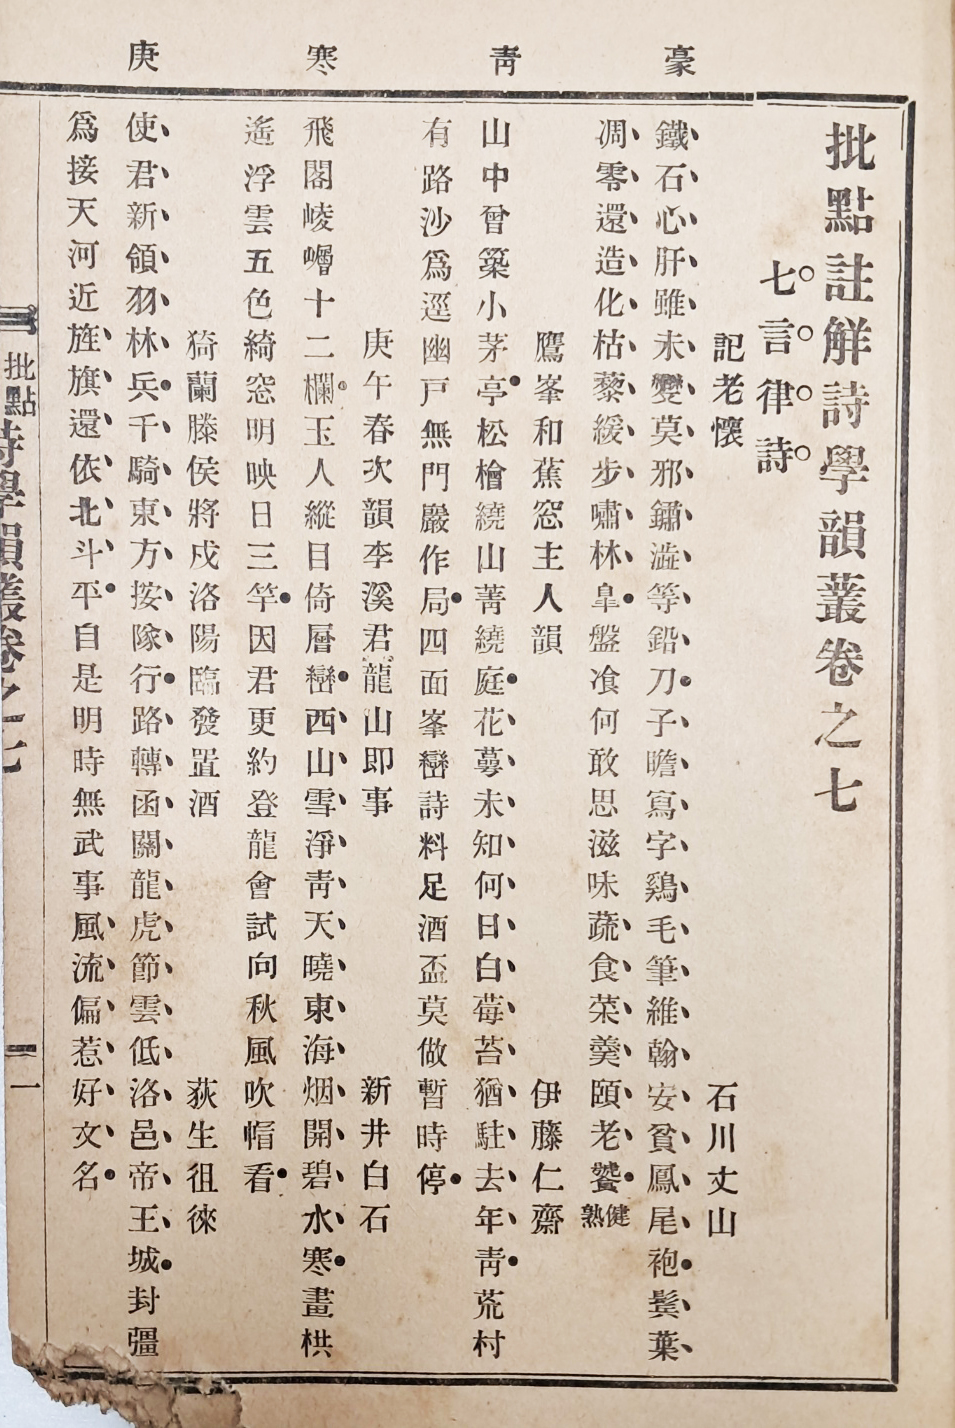 豪
青
寒
庚
批點註解詩學韻叢卷之七
七言律詩
記老懷
石川丈山
鐵石心肝雖未變莫邪鏽澁等鉛刀子瞻寫字鷄毛筆維翰安貧鳳尾袍鬓葉
凋零還造化枯藜緩步嘯林皐盤飡何敢思滋味蔬食菜羹頤老饕
健熟
鷹峯和蕉窓主人韻
伊藤仁齋
山中曾築小茅亭松檜繞山菁繞庭花蕚未知何日白莓苔猶駐去年青荒村
有路沙爲逕幽戸無門巖作局四面峯巒詩料足酒盃莫做暫時停
庚午春次韻李溪君龍山即事
新井白石
飛閣崚嶒十二欄玉人縱目倚層巒西山雪淨青天曉東海烟開碧水寒畫栱
遙浮雲五色綺窓明映日三竿因君更約登龍會試向秋風吹帽看
猗蘭滕侯將戍洛陽臨發置酒
荻生徂徠
使君新領羽林兵千騎東方按隊行路轉函關龍虎節雲低洛邑帝王城封疆
爲接天河近旌旗還依北斗平自是明時無武事風流偏惹好文名
批點詩學韻叢卷之七
一